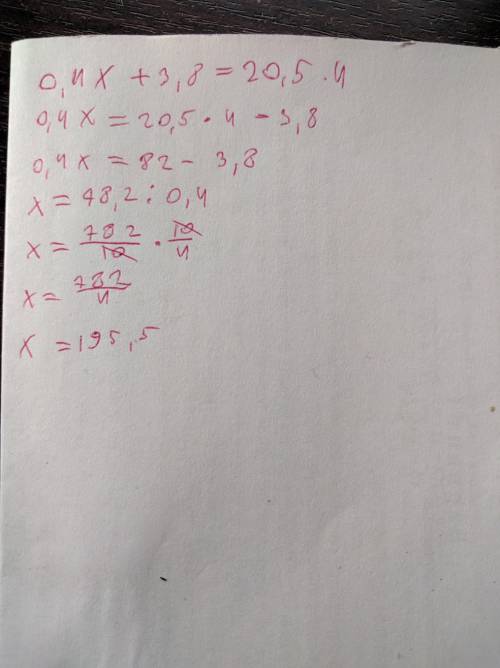 0,4x + 3,8 = 20,5 · 4
0,4x = 20,5 · 4 - 3,8
0,4x = 82 - 3,8
x = 48,2 : 0,4
x = 782/10 · 10/4
x = 782/4
x = 195,5